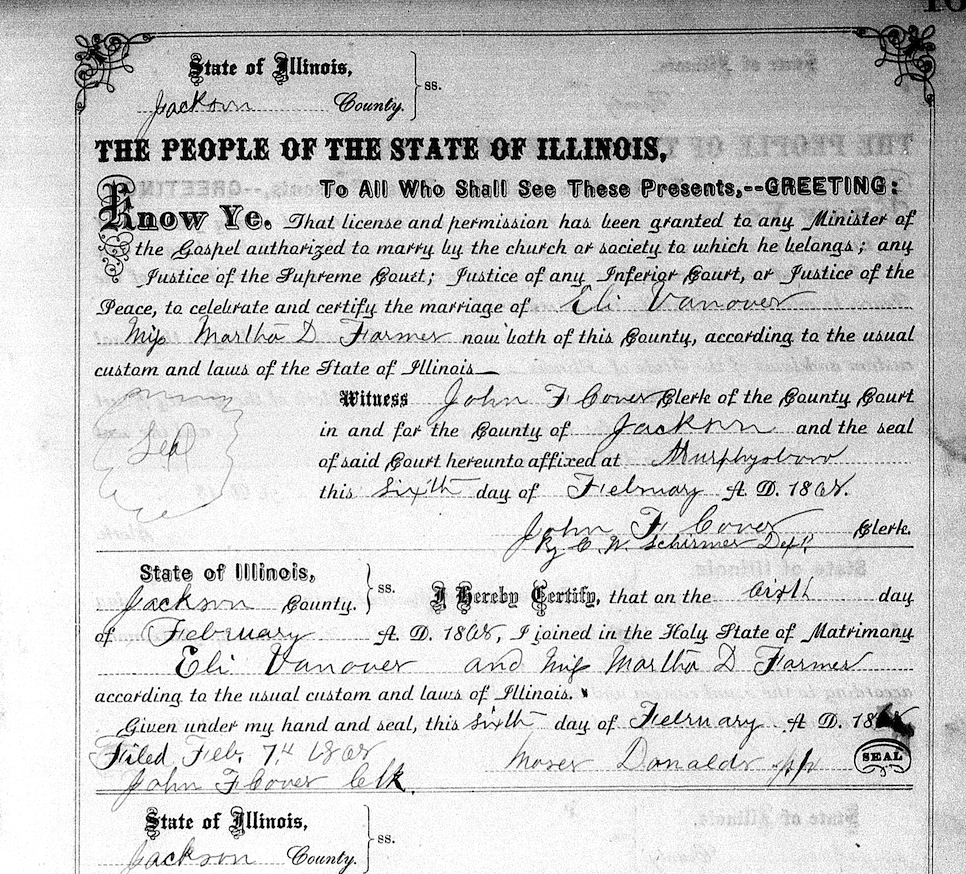 State of Illinois,
Jackson County. } ss.
THE PEOPLE OF THE STATE OF ILLINOIS,
To All Who Shall See These Presents,--GREETING:
Know Ye. That license and permission has been granted to any Minister of
the Gospel authorized to marry by the church or society to which he belongs; any
Justice of the Supreme Court; Justice of any Inferior Court, or Justice of the
Peace, to celebrate and certify the marriage of Eli Vanover
Miss Martha D Farmer now both of this County, according to the usual
custom and laws of the State of Illinois
Witness John F Cover Clerk of the County Court
Seal
in and for the County of Jackson and the seal
of said Court hereunto affixed at Murphysboro
this Sixth day of February A. D. 1868.
John F Cover Clerk.
By C. W. Schirmer Dept.
State of Illinois,
Jackson County. } ss. I Hereby Certify, that on the sixth day
of February A. D. 1868, I joined in the Holy State of Matrimony
Eli Vanover and Miss Martha D Farmer
according to the usual custom and laws of Illinois.
Given under my hand and seal, this sixth day of February A. D. 18
Filed Feb. 7th 1868 Donalds SEAL
John F Cover Clk.
State of Illinois,
Jackson County. } ss.